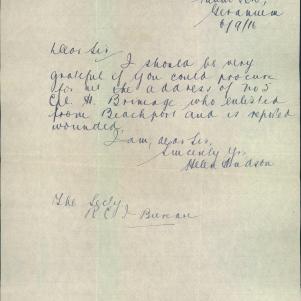 Geranium
6/9/16
Dear Sir,
I should be very
grateful if you could procure
for me the address of no 5
Cpl. H. Brimage who enlisted
from Beachport and is reported
wounded.
I am, dear Sir,
Sincerely Yrs.
Helen Hudson
The Secty
R C I Bureau